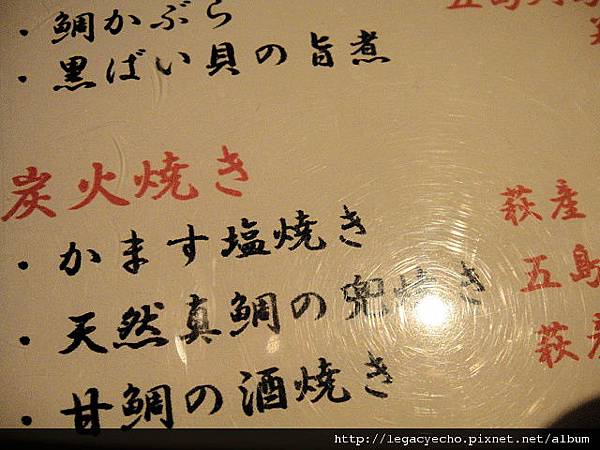 ・鯛かぶら
・黒ばい貝の旨煮
炭火焼き
・かます塩焼き
萩産
・天然真鯛の兜焼き
五島
・甘鯛の酒焼き
萩産
http://legacyecho.pixnet.net/album